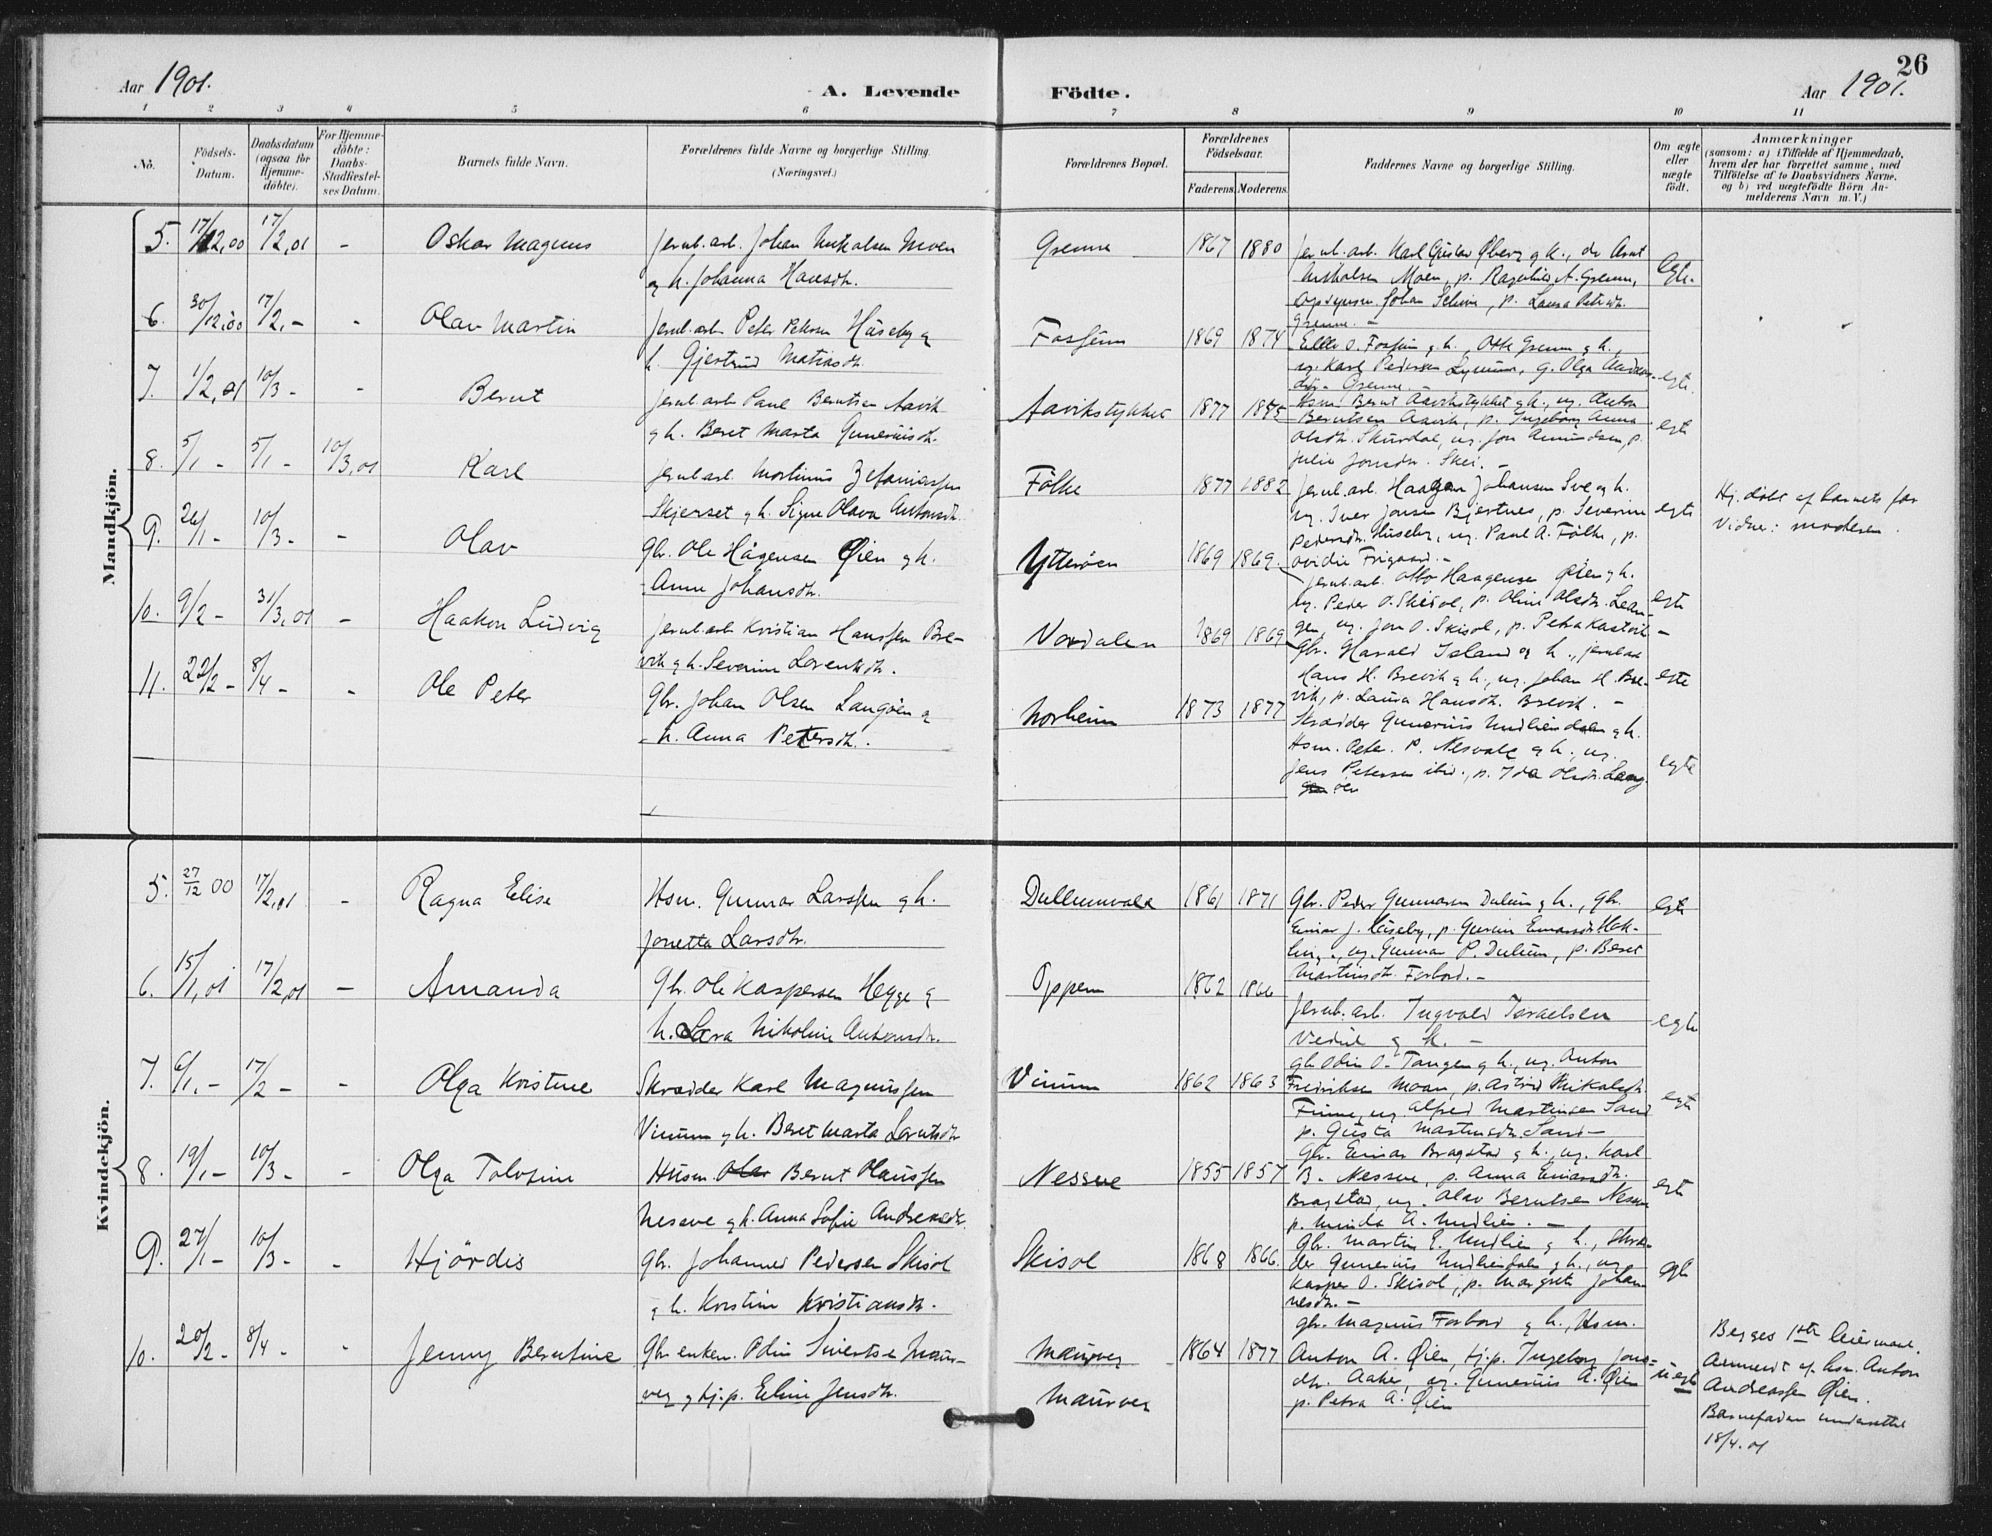 Aar 1901.
A. Levende
Födte.
26
Aar 1901.
1 2 3 4 5 6 7 8 9 10 11
No.
Födsels-
Datum.
Daabsdatum
(ogsaa for
Hjemme-
döbte).
For Hjemme-
döbte:
Daabs-
Stadfæstel-
ses Datum.
Barnets fulde Navn.
Forældrenes fulde Navne og borgerlige Stilling.
(Næringsvei.)
Forældrenes Bopæl.
Forældrenes
Födselsaar.
Faderens.
Moderens.
Faddernes Navne og borgerlige Stilling.
Om ægte
eller
uægte
födt.
Anmærkninger
(saasom: a) i Tilfælde af Hjemmedaab,
hvem der har forrettet samme, med
Tilföielse af to Daabsvidners Navne,
og b) ved uægtefödte Börn An-
melderens Navn m. V.)
Mandkjön.
5. 17/12,00 17/2,01 - Oskar Magnus
Jernb.arb. Johan Nikolsen Moen
og h. Johanna Hansdtr.
Grenne 1867 1880
Jernb.arb. Karl Gustav Öberg g k.,
Nikolsen Moen, p.
Johan p. Laura
Grenne. -
6. 30/12,00 17/2,- - Olav Martin
Jernb.arb. Peter Petersen Håseby g
h. Gjertrud Matiasdtr.
1869 1874
g h., Otto Grenne g h.,
ug. Karl Pedersen g. Olga
Grenne. -
egte
7. 1/2,01 10/3 - - Bernt
Jernb.arb. Paul Berntsen Aavik
g h. Beret Marta Gunneriusdtr.
Aavikstykket 1877 1875
Hsm. Bernt Aavikstykket g h., ug. Anton
Berntsen Aavik, p. Ingeborg Anna
Olsdtr. Skurdal, ug. Jon Amundsen, p.
Julie Jonsdtr. Skei. -
egte
8. 5/1 - 5/1 - 10/3,01 Karl
Jernb.arb. Mortinus Zefaniassen
Skjerset g h. Signe Olava Antonsdtr.
Fölke 1877 1882
Jernb.arb. Haagen Johansen Sve g h.
ug. Iver Jonsen Bjertnes, p. Severine
Pedersdtr. Huseby, ug. Paul A. Fölke, p.
Ovidie Frigaard. -
egte
Hj. döbt af barnets far
Vidne: moderen.
9. 26/1 - 10/3 - - Olav
Gbr. Ole Hågensen Øien g h.
Anne Johansdtr.
Ytteröen 1869 1869.
Jernb.arb. Otto Haagensen Øien g h.
ug. Peder O. Skisol, p. Oline Olsdtr. Lean-
gen, ug. Jon O. Skisol, p. Petra
egte
10. 9/2 - 31/3,01 - Haakon Ludvig
Jernb.arb. Kristian Hanssen Bre-
vik g h. Severine Lorentsdtr.
Nordalen 1869 1869
Gbr. Harald og h., jernb.arb
Hans H. Brevik g h., ug. Johan H. Bre-
vik, p. Laura Hansdtr. Brevik. -
egte
11. 22/2 - 8/4 - - Ole Peter
Gbr. Johan Olsen Langöen g
h. Anna Petersdtr.
Norheim 1873 1877
Skrædder Gunerius g h.
Hsm. Peter P. Nesvale g h., ug.
Jens Petersen ibid., p. Ida Olsdtr. Lang
öen
egte
Kvindekjön.
5. 27/12 00 17/2,01 - Ragna Elise
Hsm. Gunnar Larssen g h.
Jonetta Larsdtr.
Dullumvald 1861 1871
Gbr. Peder Gunnarsen Dulum g h., Gbr.
Einar J. Håseby, p. Einarsdtr. Hok-
ling, ug. Gunnar P. Dulum, p. Beret
Martinsdtr. Forbord. -
egte
6. 15/1,01 17/2,01 - Amanda
Gbr. Ole Kaspersen Hegge g
h. Lara Nikoline Antonsdtr.
Oppem 1862 1866
Jernb.arb. Ingvald Israelsen
g h. -
egte
7. 6/1,- 17/2 - - Olga Kristine
Skrædder Karl Magnussen
Vinum g h. Beret Marta Lorntsdtr
Vinum 1862 1863
gbr. Odin O. Tangen g h., ug. Anton
Fredriksen Moan, p. Astrid Nikolsdtr.
Finne, ug. Alfred Martinsen Sand
p. Gusta Martinsdtr. Sand -
egte
8. 19/1 - 10/3 - - Olga Tolvfine
Husm. Bernt Olaussen
Nesseve g h. Anna Sofie Andreasdtr.
Nesseve 1855 1857
Gbr. Einar Bragstad g h., ug. Karl
B. Nesseve, p. Anna Einarsdtr.
Bragstad, ug. Olav Berntsen Nessve
p. Minda A. -
egte
9. 27/1 - 10/3 - - Hjördis
Gbr. Johannes Pedersen Skisol
g h. Kristine Kristiansdtr.
Skisol 1868 1866.
Gbr. Martin E. g h., Skræd-
der Gunerius g h., ug
Kasper O. Skisol, p. Margrete Johan-
nesdtr. -
egte
10. 20/2 - 8/4 - - Jenny Berntine
Gbr enkem. Odin Sivertsen Maur-
veg g tj.p. Eline Jensdtr.
Maurveg 1864 1877
Maurveg
gbr. Magnus Forbord g h., Hsm.
Anton A. Øien, tj.p. Ingeborg Jons-
dtr. Aaker, ug. Gunerius A. Øien
p. Petra A. Øien
uegte
Begges 1ste leiermaal.
Anmeldt af hsm. Anton
Andreassen Øien.
Barnefaderen underrettet
18/4.01